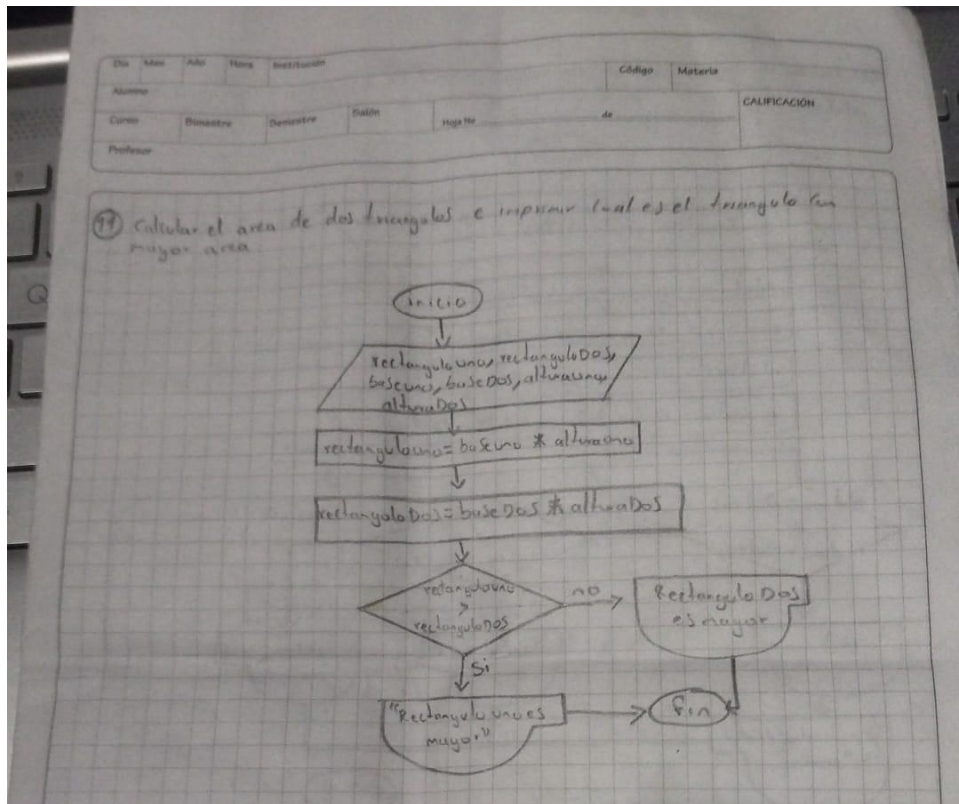 Día Mes Año Hora Institución Código Materia
Alumno
Curso Bimestre Semestre Salón Hoja No de CALIFICACIÓN
Profesor
Calcular el area de dos triangulos e imprimir cual es el triangulo con
mayor area.
inicio
rectangulo uno, rectangulo DOS,
baseuno, baseDos, alturauno,
alturaDos
rectangulouno = baseuno * alturauno
rectanguloDos = baseDos * alturaDos
rectangulouno
>
rectanguloDOS
no
Rectangulo Dos
es mayor
Si
"Rectangulo uno es
mayor"
fin
Q